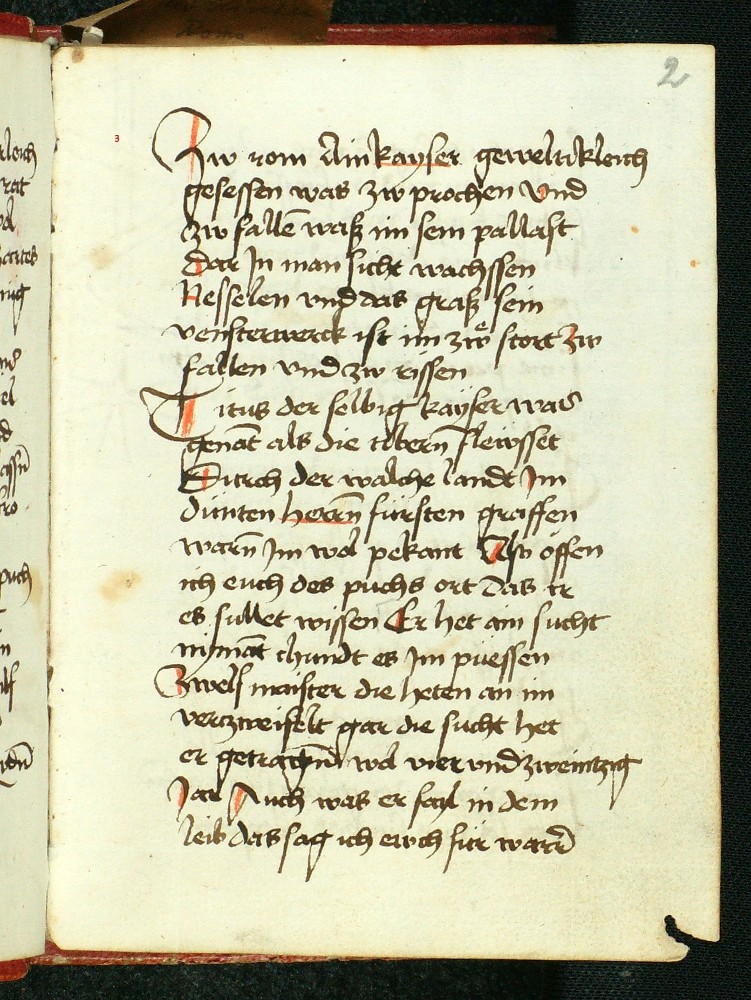 2
3
Zw rom Ain kayser geweltikleich
gesessen was zw prochen vnd
zw fallē waß im sein pallast
Dar Jn man sicht wachssen
Nesselen vnd das graß sein
vensterwerck ist im zẘ stort zw
fallen vnd zw rissen
Titus der selbig kayser was
genāt als die tibern̄ flewsset
Durch der walche landt Im
dinten herrn̄ fürsten graffen
warn̄ Jm wol pekant Also öffen
ich euch des puchs ort Das ir
es sullet wissen Er het ain sucht
nymāt chundt es Jm püessen
Zwelf maister die heten an im
verczweifelt gar die sucht het
er getragn̄ wol vier vnd zweintzig
Jar Auch was er fayl in dem
leib das sag ich ewch für warr